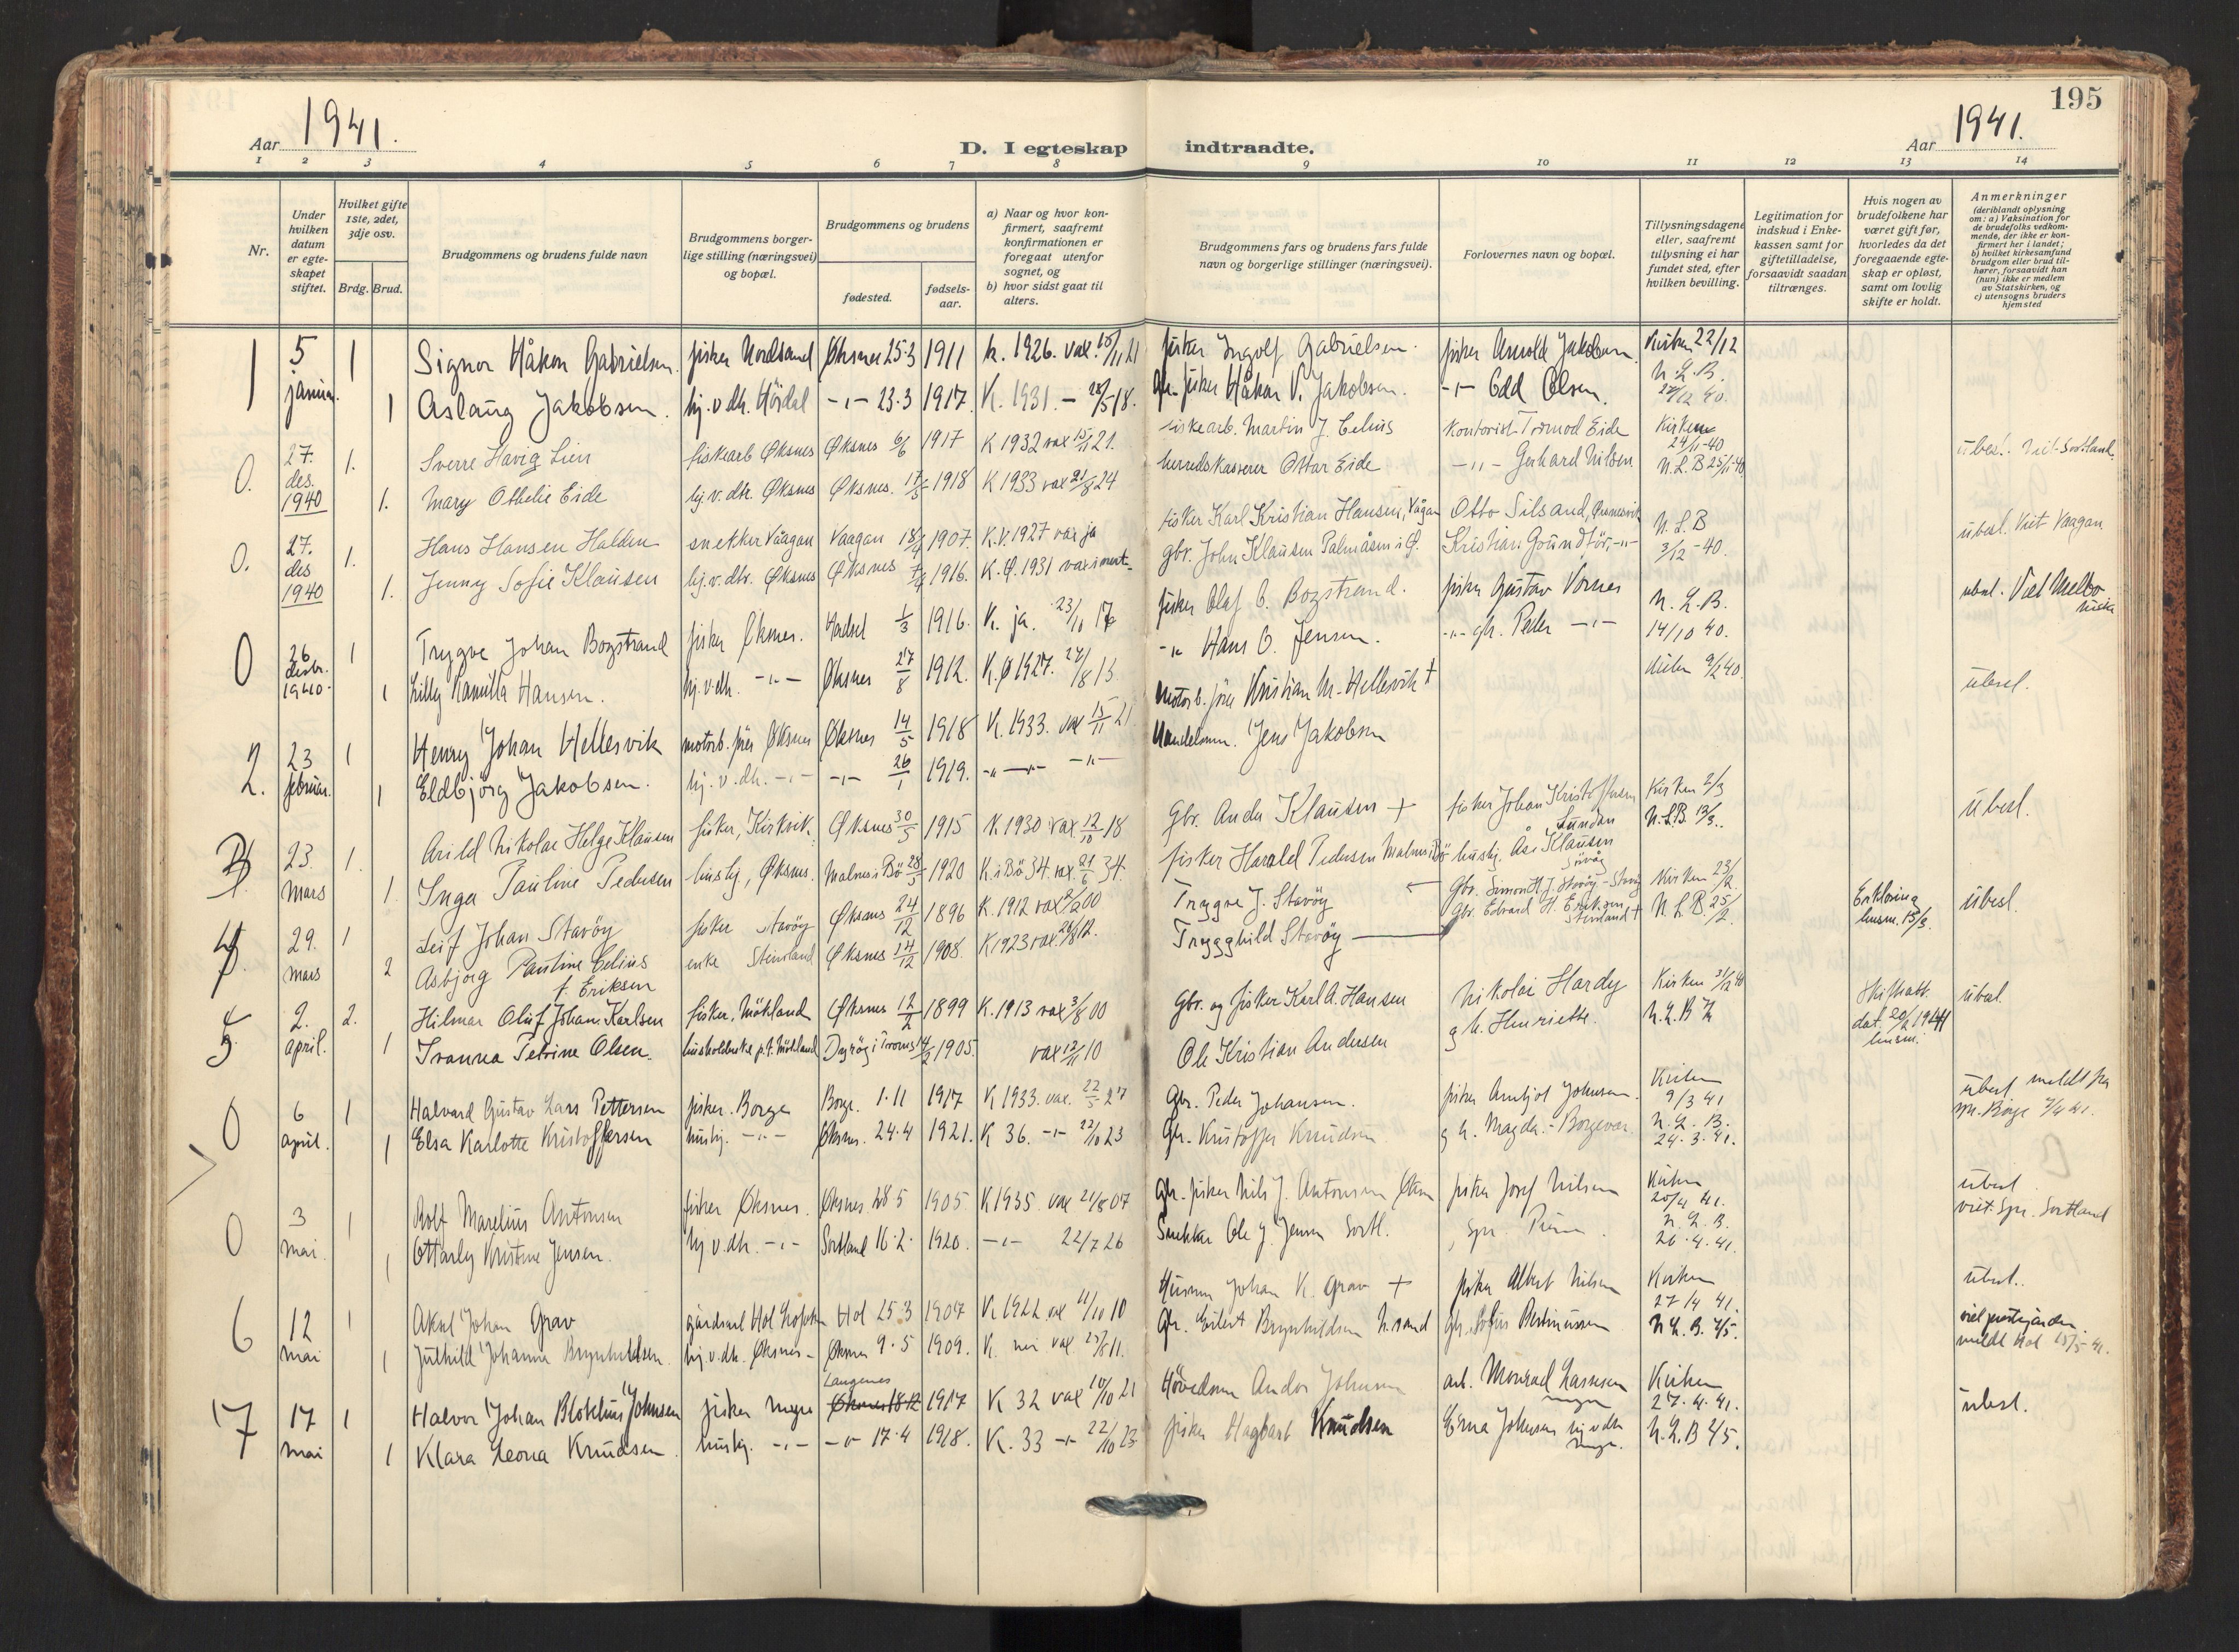 195
Aar 1941.
D. I egteskap indtraadte.
Aar 1941.
1 2 3 4 5 6 7 8 9 10 11 12 13 14
Nr.
Under hvilken datum er egte-skapet stiftet.
Hvilket gifte 1ste, 2det, 3dje osv.
Brdg. Brud.
Brudgommens og brudens fulde navn
Brudgommens borger-lige stilling (næringsvei) og bopæl.
Brudgommens og brudens
fødested.
fødsels-aar.
a) Naar og hvor kon-firmert, saafremt konfirmationen er foregaat utenfor sognet, og
b) hvor sidst gaat til alters.
Brudgommens fars og brudens fars fulde navn og borgerlige stillinger (næringsvei).
Forlovernes navn og bopæl.
Tillysningsdagene eller, saafremt tillysning ei har fundet sted, efter hvilken bevilling.
Legitimation for indskud i Enke-kassen samt for giftetilladelse, forsaavidt saadan tiltrænges.
Hvis nogen av brudefolkene har været gift før, hvorledes da det foregaaende egte-skap er opløst, samt om lovlig skifte er holdt.
Anmerkninger (deriblandt oplysning om: a) Vaksination for de brudefolks vedkom-mende, der ikke er kon-firmert her i landet; b) hvilket kirkesamfund brudgom eller brud til-hører, forsaavidt han (hun) ikke er medlem av Statskirken, og c) utensogns bruders hjemsted
1 5 1 Signor Håkon Gabrielsen. fisker Nordsand Øksnes 25-3 1911 k. 1926. vax. 15/11 21 fisker Ingolf Gabrielsen. fisker Arnold Jakobsen Kirken 22/12
januar. 1 Aslaug Jakobsen. hj. v. dh. Hördal -"- 23.3 1917. K. 1931. - 28/5 18. Gbr. fisker Håkon V. Jakobsen. -"- Odd Olsen. N. L. B. 27/12 40.
0. 27. des. 1940 1. Sverre Havig Lien fiskearb Øksnes Øksnes 6/6 1917 K 1932 vax 15/11 21. fiskearb. Martin J. Celius kontorist Tormod Eide Kirken 24/11-40
1. Mary Othelie Eide hj. v. dh. Øksnes Øksnes. 17/5 1918 K 1933 vax 21/8 24 herredskasserer Ottar Eide -"- Gerhard Nilsen N. L. B 25/11-40 ubesl. Viet Sortland.
0. 27. des 1940 1. Hans Hansen Halden snekker Vaagan Vaagan 18/4 1907. K. V. 1927 vax ja fisker Karl Kristian Hansen, Vågan Otto Silsand, N. L. B ubesl. Viet Vaagan.
1. Jenny Sofie Klausen hj. v. dtr. Øksnes Øksnes 1916. K. Ø. 1931 gbr. John Klausen Kristian Grundför, -"- 3/12-40.
0 26 desbr. 1940. 1 Trygve Johan Bogstrand fisker Øksnes. Hadsel 1/3 1916. K. ja. 23/10 17 fisker Olaf C. Bogstrand. fisker Gustav Vornes N. L. B. ubesl. Viet Melbo
1 Lilly Kamilla Hansen. hj. v. dh. -"- Øksnes 27/8 1912. K. Ø 1927. 27/8 13 -"- Hans O. Jensen. -"- gh. Peder -"- 14/10 40.
2. 23 februar. 1 Henry Johan Hellesvik motorb. fører Øksnes Øksnes 14/5 1918 K. 1933. vax 15/11 21 Motorb. fører Kristian M. Hellesvik + Kirken 9/2 40. ubesl.
1 Eldbjörg Jakobsen. hj. v. dh. -"- -"- 26/1 1919. -"- -"- -"- Handelsm. Jens Jakobsen
3 23. Mars 1. Arild Nikolai Helge Klausen fisker, Kirkvik. Øksnes 30/5 1915 K 1930 vax. 12/10 18 Gbr. Ander Klausen + fisker Johan Kristoffersen Lundan Kirken 2/3 ubesl.
1. Inga Pauline Pedersen hushj., Øksnes. Malnes i Bö 28/5 1920 K. i Bö 34. vax. 21/6 34. fisker Harald Pedersen Malnes i Bö hushj. Åse Klausen N. L. B. 13/3.
4. 29. mars 1 Leif Johan Stavöy fisker Stavöy Øksnes 24/12 1896 K. 1912 Trygve J. Stavöy Gbr. Simon H. J. Stavöy - Kirken 23/2. Erklæring lensm. 15/3. ubesl.
2 Asbjörg Pauline Celius f. Eriksen enke Steinland Øksnes 24/12 1908. K 1923 vax. 26/8 12. Trygghild Stavöy Gbr. Edvard H. Eriksen Steinland + N. L. B. 25/2.
5 2. april. 2. Hilmar Oluf Johan. Karlsen fisker. Mökland Øksnes 12/2 1899 K. 1913 vax 3/8 00 Gbr. og fisker Karl A. Hansen Nikolai Hardy Kirken 31/12 40 Skifteatt. dat. 20/2 1941 lensm. ubesl.
1 Ivanna Petrine Olsen. husholderske p. t. Mökland Dyröy i Troms 14/2 1905. vax 12/11 10 Ole Kristian Andersen g h. Henriette. N. L. B
0 6 april. 1 Halvard Gustav Lars Pettersen fisker. Borge Borge. 1.11 1917 K 1933. vax. 22/5 27 Gbr. Peder Johansen. fisker Arnljot Johnsen. Kirken 9/3 41 ubesl. meldt fra spr. Borge 7/4 41.
1 Elsa Karlotte Kristoffersen hushj. -"- Øksnes. 24.4 1921. K 36. -"- 22/10 23 Gbr. Kristoffer Knudsen g h. Magda - Borgevær. N. L. B. 24.3.41.
0 3 mai. 1 Rolf Marelius Antonsen fisker Øksnes. Øksnes 28 5 1905. K 1935. vax 21/8 07 Gbr. fisker Nils J. Antonsen fisker Josef Nilsen Kirken 20/4 41. ubesl. viet. Spr. Sortland
1 Ottarly Kristine Jensen. hj. v. dh. -"- Sortland 16.2. 1920. -"- 22/7 26 Snekker Ole J. Jensen Sortl. N. L. B. 26.4.41.
6 12 mai 1 Aksel Johan Grav gårdsarb Hol Lofoten Hol 25.3 1907 K 1922 vax 11/10 10 Husmn Johan K. Grav + fisker Albert Nilsen Kirken 27/4 41. ubesl..
1 Juthild Johanna Brynhildsen. hj. v. dh. Øksnes - Øksnes 9.5 1909. K. nei vax. 25/8 11. Gbr. Eilert Brynhildsen N. sand gbr. Sofus N. L. B. 2/5. viet prestegården meldt Hol 15/5-41.
7 17 mai 1 Halvor Johan Blotelius Johnsen fisker Myre Langenes Øksnes 18-12 1917 K 32 vax 10/10 21 Hövedsmn Andor Johnsen arb. Monrad Lassesen Myre Kirken 27.4.41. ubesl.
1 Klara Leona Knudsen. hushj. -"- -"- 17.4 1918. K. 33 -"- 22/10 23 fisker Hagbart Knudsen Erna Johnsen hj v dh Myre. N. L. B 2/5.